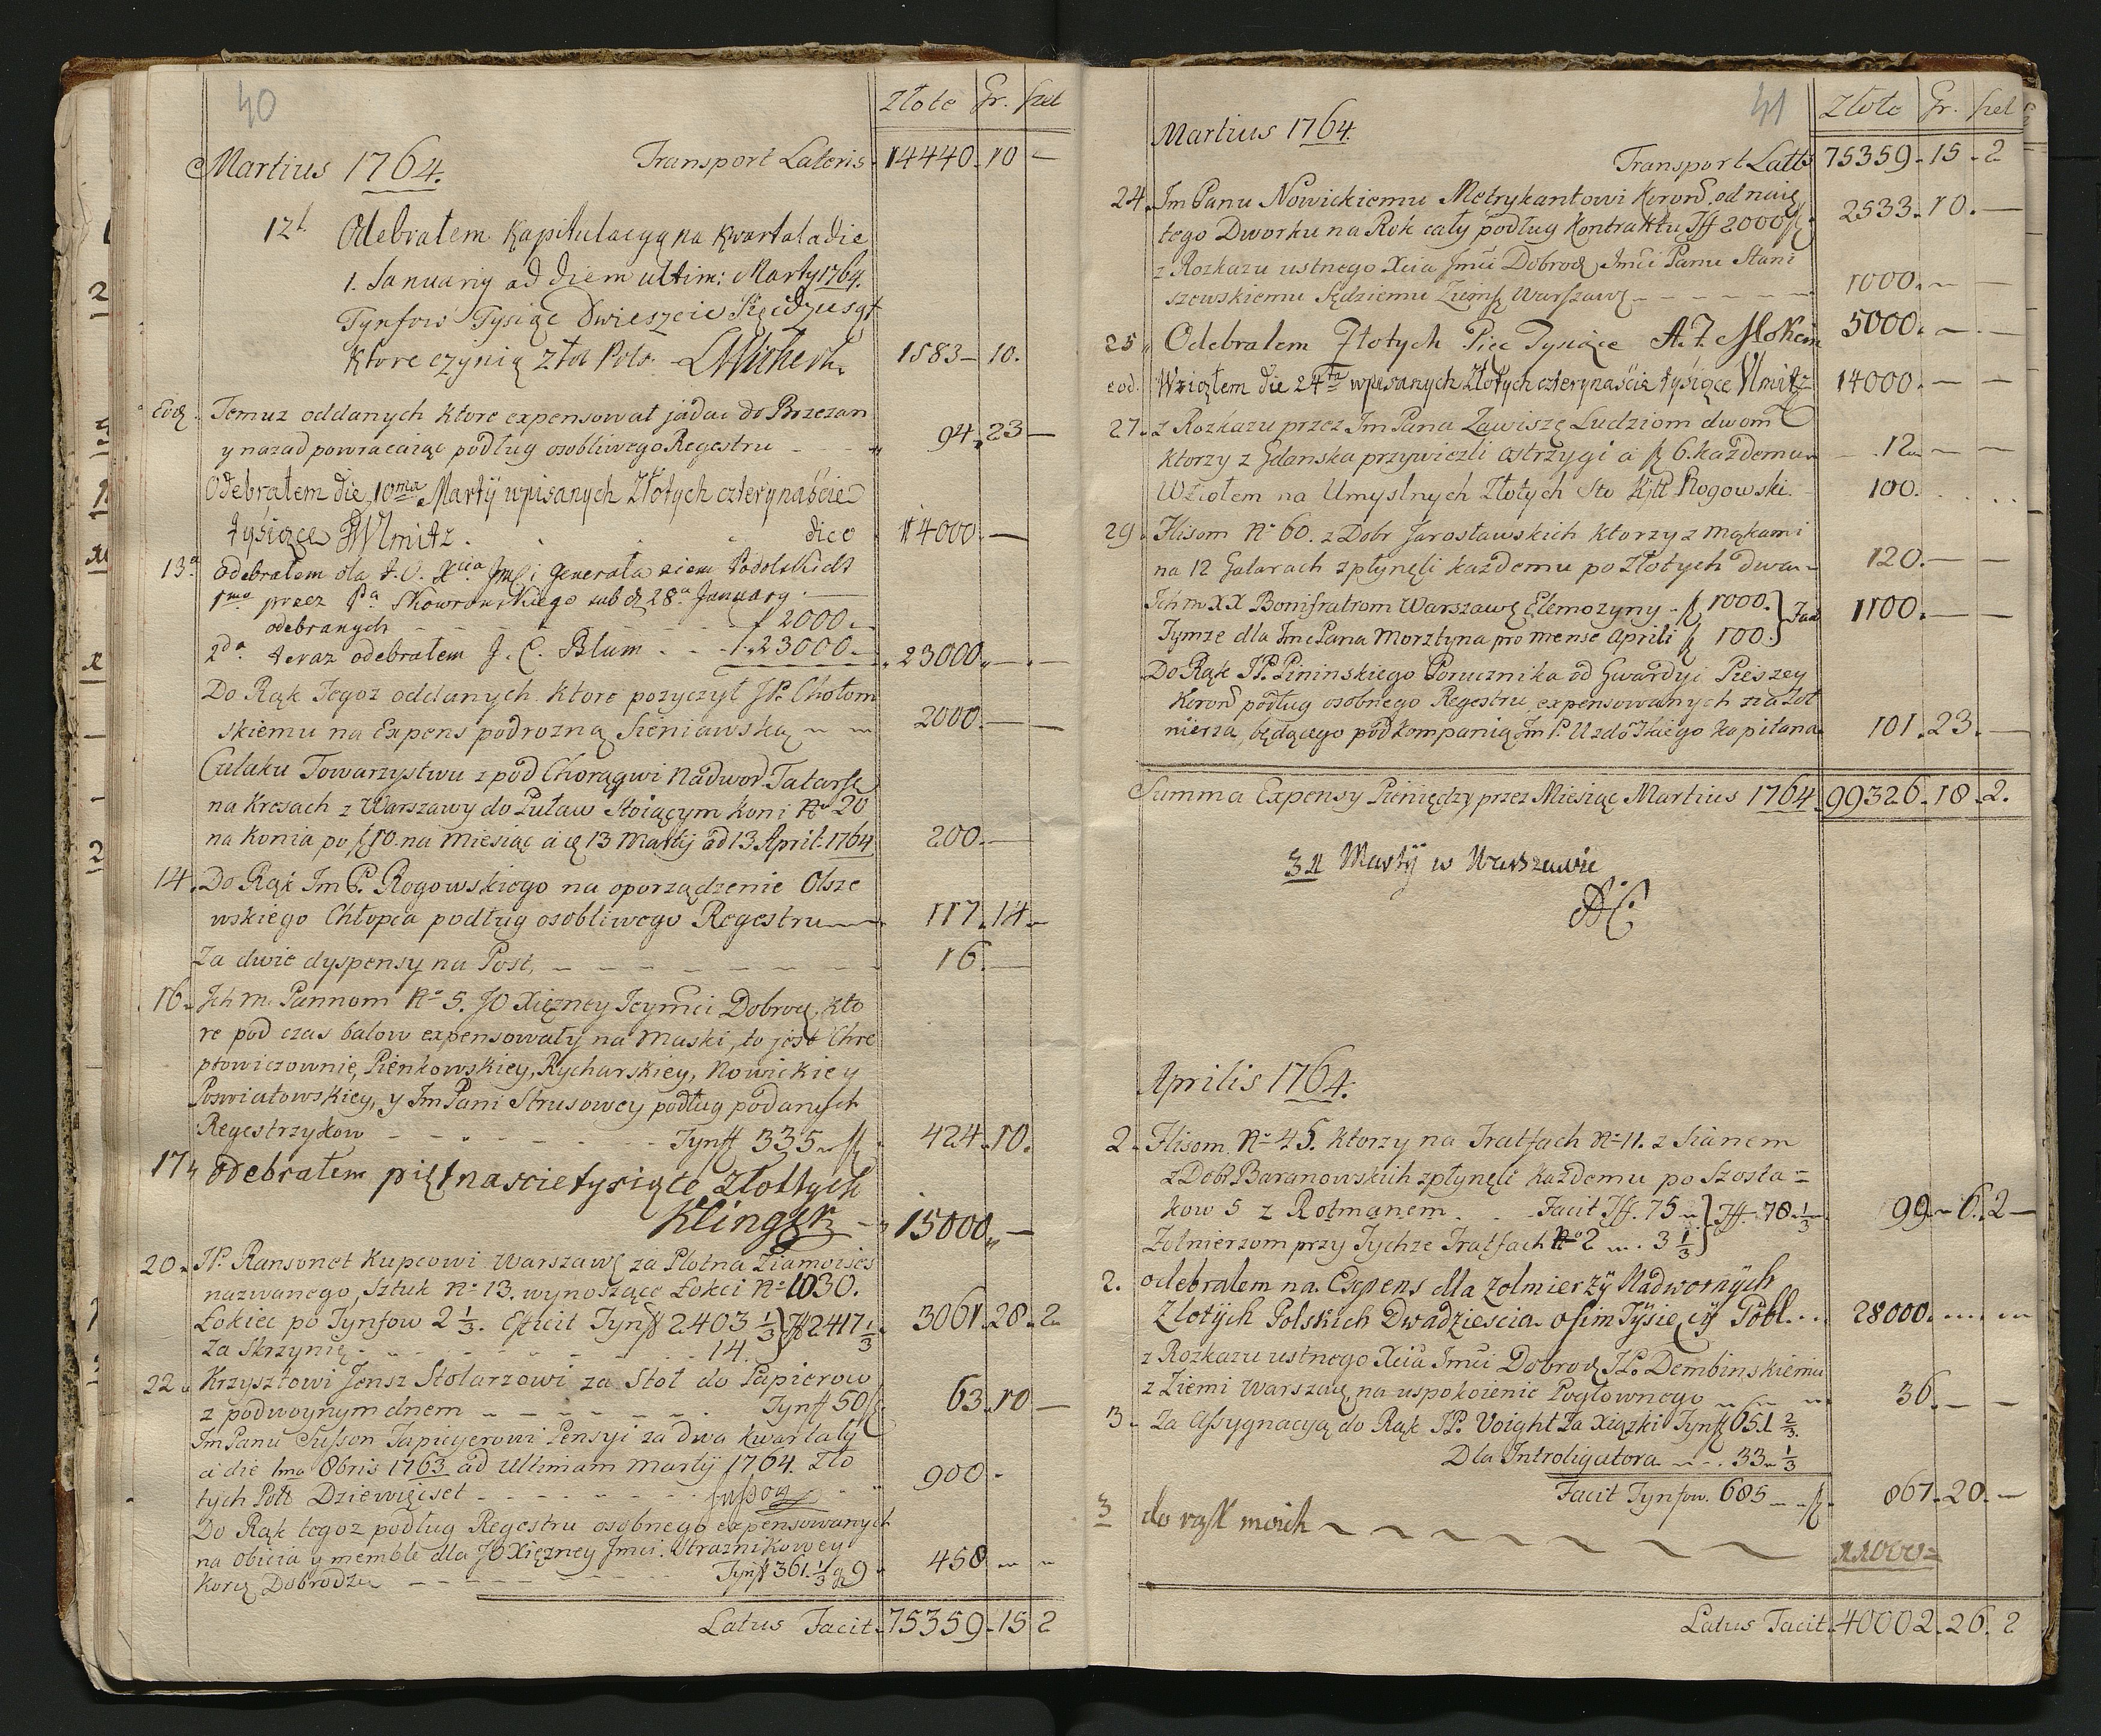 40
Złote Gr. szel
Martius 1764. Transport Lateris 14440. 10 —
12 Odebrałem Kapitulacyą na kwartał a die
1. Ianuarij ad diem ultim: Martij 1764.
Tynfow Tysiąc Dwieście Pięcdziesąt
ktore czynią Zło: Pols. 1583 — 10.
Eod. Temuz oddanych ktore expensował jadąc do Brzezan
y nazad powracaiąc podług osobliwego Regestru 94. 23 —
Odebrałem die 10ma Martÿ wpisanych Złotych czternaście
tysiącę Ulmitz. dico 14000. —
13a odebrałem dla J. O. Xcia Jmci Generała ziem Podolskich
1mo przez Pa Skowronskiego sub d. 28a January.
odebranych 2000
2do teraz odebrałem J. C. Blum 23000. 23000. — —
Do Rąk Tegoz oddanych ktore pozyczył JP. Chołoni
skiemu na Expens podrozną Sieniawską 2000. — —
Culaku Towarzystwu z pod Chorągwi Nadwor. Tatarsk
na Kresach z Warszawy do Puław Stoiącym koni No 20
na Konia po f 10. na Miesiąc a 13 Martij ad 13 April. 1764 200. —
14. Do Rąk Im P. Rogowskiego na oporządzenie Olsze
wskiego Chłopca podług osobliwego Regestru 117. 14
Za dwie dyspensy na Post, 16. —
16. Ich m. Pannom No 5. JO Xięzney Ieymci Dobrod, kto
re pod czas balow expensowały na Maski, to jest Chre
ptowiczownie, Pienkowskiey, Rycharskiey, Nowickiey
Poswiatowskiey, y Im Pani Strusowey podług podanych
Regestrzykow Tynff 335 424. 10.
17 Odebrałem piętnascie tysiące Złottych
Klinger 15000 —
20. JP. Ransonet Kupcowi Warszaw za Płotna Ziamoises
nazwanego, Sztuk No 13. wynoszące Łokci No 1030.
Łokiec po Tynfow 2 1/3. Efficit Tynff 2403 1/3 } Tff 2417 1/3 3061. 28. 2
Za Skrzynię 14.
22 Krzysztowi Jensz Stolarzowi za Stoł do Papierow
z podwoynym dnem Tynff 50 63. 10 —
Im Panu Susson Tapicyerowi Pensyi za dwa kwartały
a die 1ma 8bris 1763 ad Ultimam Martij 1764. Zło
tych Pols Dziewięcset Susson 900.
Do Rąk tegoz podług Regestru osobnego expensowanych
na obicia y memble dla JO Xięzney Jmci. Straznikowey
Koro Dobrodzi Tynff 361. 1/3 g 9 458
Latus Facit 75359. 15 2
41
Złote Gr. szel
Martius 1764.
Transport Latts 75359. 15. 2
24. Im Panu Nowickiemu Metrykantowi Koron. od naię
tego Dworku na Rok cały podług Kontraktu Tff 2000 2533. 10. —
z Rozkazu ustnego Xcia Jmci Dobrod Jmci Panu Stani
szewskiemu Sędziemu Ziemsk Warszaw 1000. — —
25 Odebrałem Złotych Pięc Tysiące A. Z. Mokein 5000. — —
eod. Wziąłem die 24ta wpisanych Złotych czternaście tysięce Ulmitz 14000. — —
27. z Rozkazu przez Im Pana Zawiszę Ludziom dwom
ktorzy z Gdanska przywiezli ostrzygi a f 6. każdemu 12 — —
Wziołem na Umyslnych Złotych Sto Rogowski. 100.
29. Flisom No 60. z Dobr Jarosławskich ktorzy z mąkami
na 12 Galarach zpłynęli każdemu po Złotych dwa 120. — —
Ich m XX Bonifratrom Warszaw Elemozyny f 1000. } Fac 1100. — —
Tymze dla Imc Pana Morsztyna pro mense Aprili f 100.
Do Rąk JP. Pininskiego Porucznika od Gwardyi Pieszey
Koron podług osobnego Regestru expensowanych na Zoł
nierza, będącego pod kompanią Im P. Uzdowskiego kapitana 101. 23. —
Summa Expensy Pieniędzy przez Miesiąc Martius 1764 99326. 18. 2.
31 Martÿ w Warszawie
AC
Aprilis 1764.
2. Flisom No 45. ktorzy na Tratfach No 11. z Sianem
z Dobr Baranowskich zpłynęli każdemu po Szosta =
kow 5 z Rotmanem Facit Tff. 75 } Tff. 78. 1/3 99. 6. 2 —
Zołnierzom przy Tychze Tratfach No 2 3 1/3
2. odebrałem na Expens dla Zołnierzÿ Nadwornÿch
Złotÿch Polskich Dwadziescia osim Tÿsięcÿ Pöbl. 28000.
z Rozkazu ustnego Xcia Jmci Dobrod JP. Dembinskiemu
z Ziemi Warszaw na uspokoienie Pogłownego 36. — —
3. Za Assygnacyą do Rąk JP. Voight Za Xiązki Tynff 651 2/3.
Dla Introligatora 33 1/3
Facit Tynfow. 685 867. 20. —
3 do rąk moich 11000 =
Latus Facit 40002. 26. 2